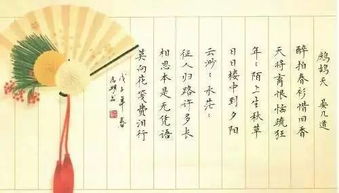 鹧鸪天 晏几道
醉拍春衫惜旧香
天将离恨恼疏狂
年々陌上生秋草
日日楼中到夕阳
云渺々水茫々
征人归路许多长
相思本是无凭语
莫向花笺费泪行
戊子年春